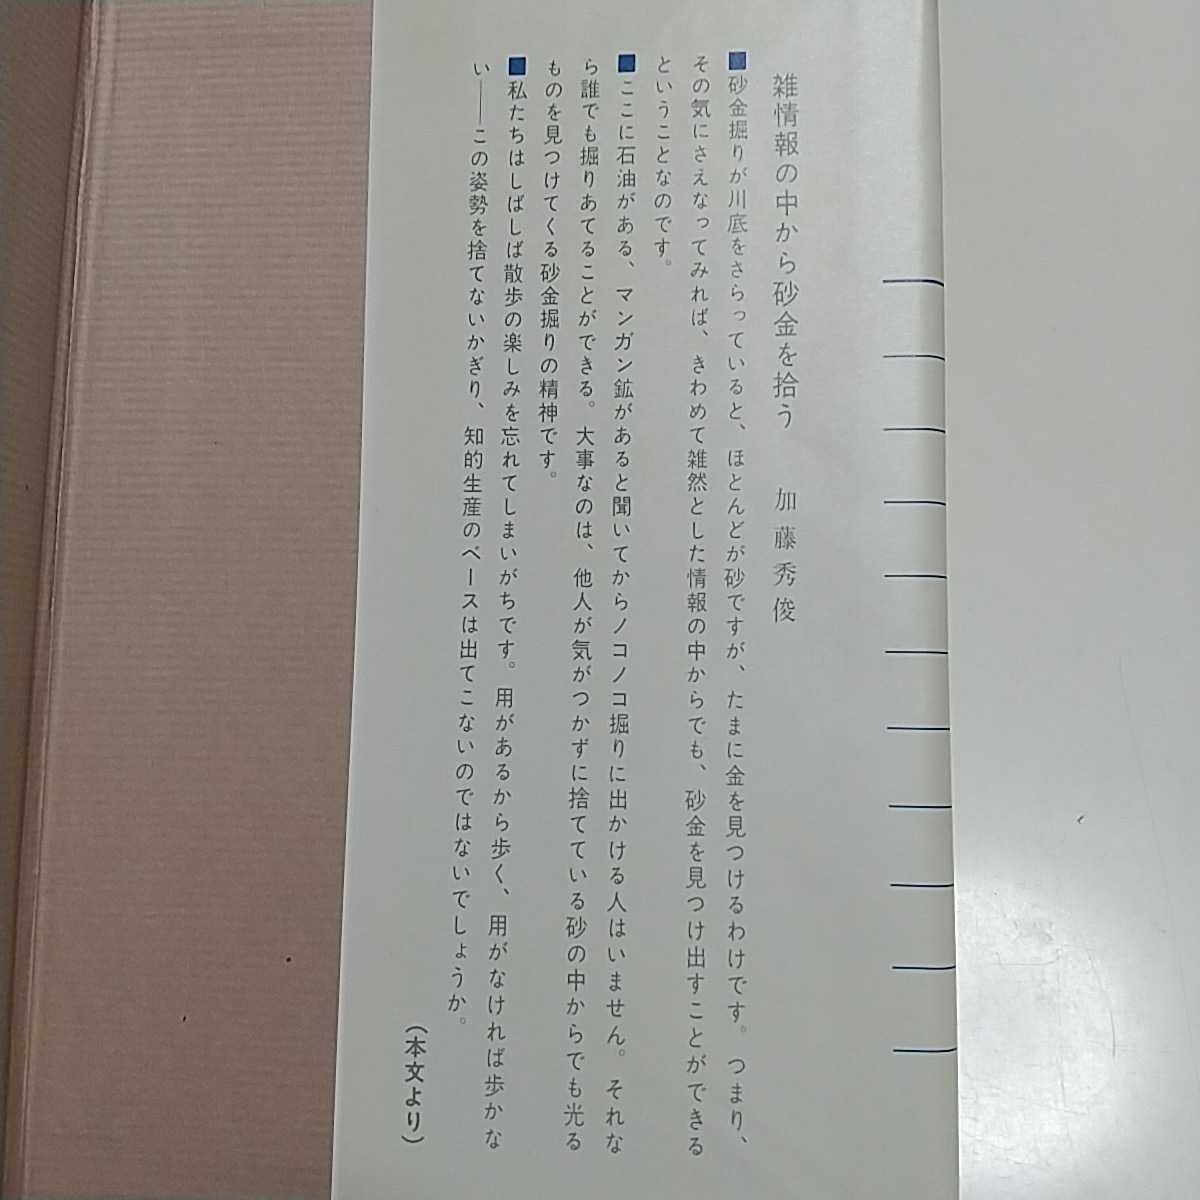 雑情報の中から砂金を拾う　加藤秀俊
■砂金掘りが川底をさらっていると、ほとんどが砂ですが、たまに金を見つけるわけです。つまり、
その気にさえなってみれば、きわめて雑然とした情報の中からでも、砂金を見つけ出すことができる
ということなのです。
■ここに石油がある、マンガン鉱があると聞いてからノコノコ掘りに出かける人はいません。それな
ら誰でも掘りあてることができる。大事なのは、他人が気がつかずに捨てている砂の中からでも光る
ものを見つけてくる砂金掘りの精神です。
■私たちはしばしば散歩の楽しみを忘れてしまいがちです。用があるから歩く、用がなければ歩かな
い——この姿勢を捨てないかぎり、知的生産のベースは出てこないのではないでしょうか。
（本文より）